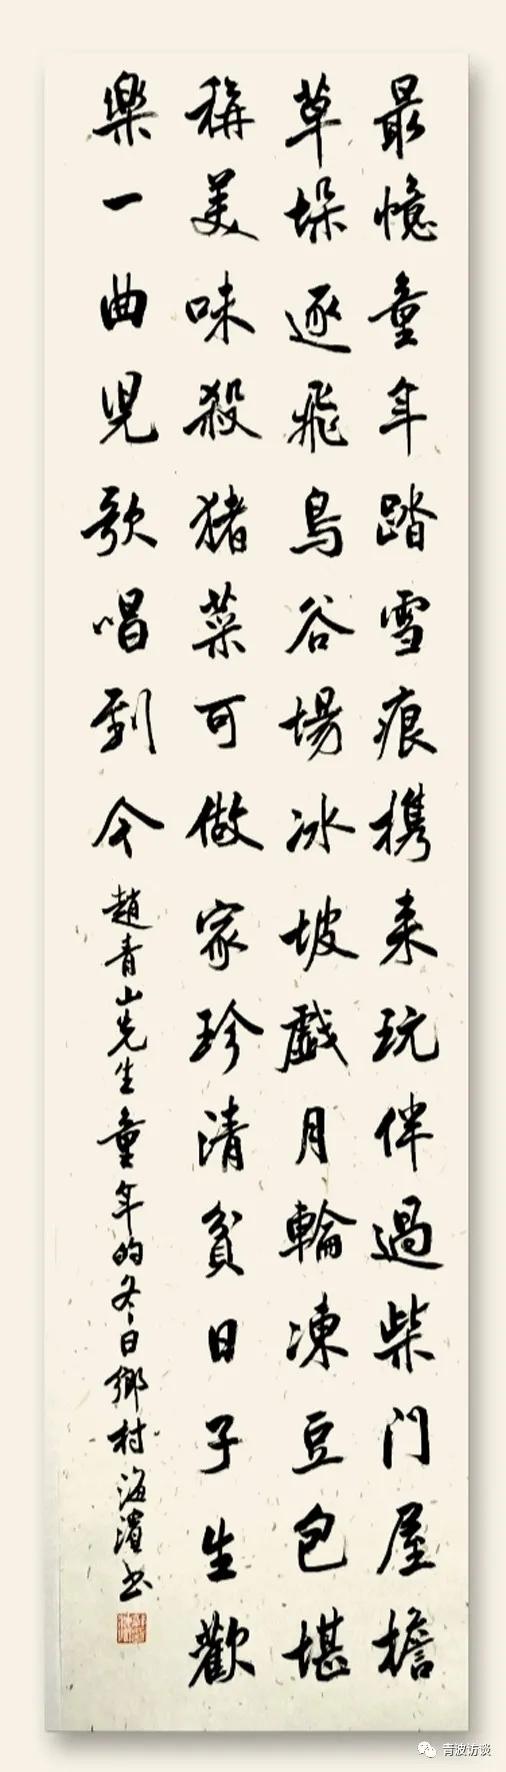 最憶童年踏雪痕携来玩伴過柴门屋檐
草垛逐飛鳥谷場冰坡戲月輪凍豆包堪
稱美味殺猪菜可做家珍清貧日子生歡
樂一曲児歌唱到今
趙青山先生童年的冬日鄉村海濱书
青波访谈